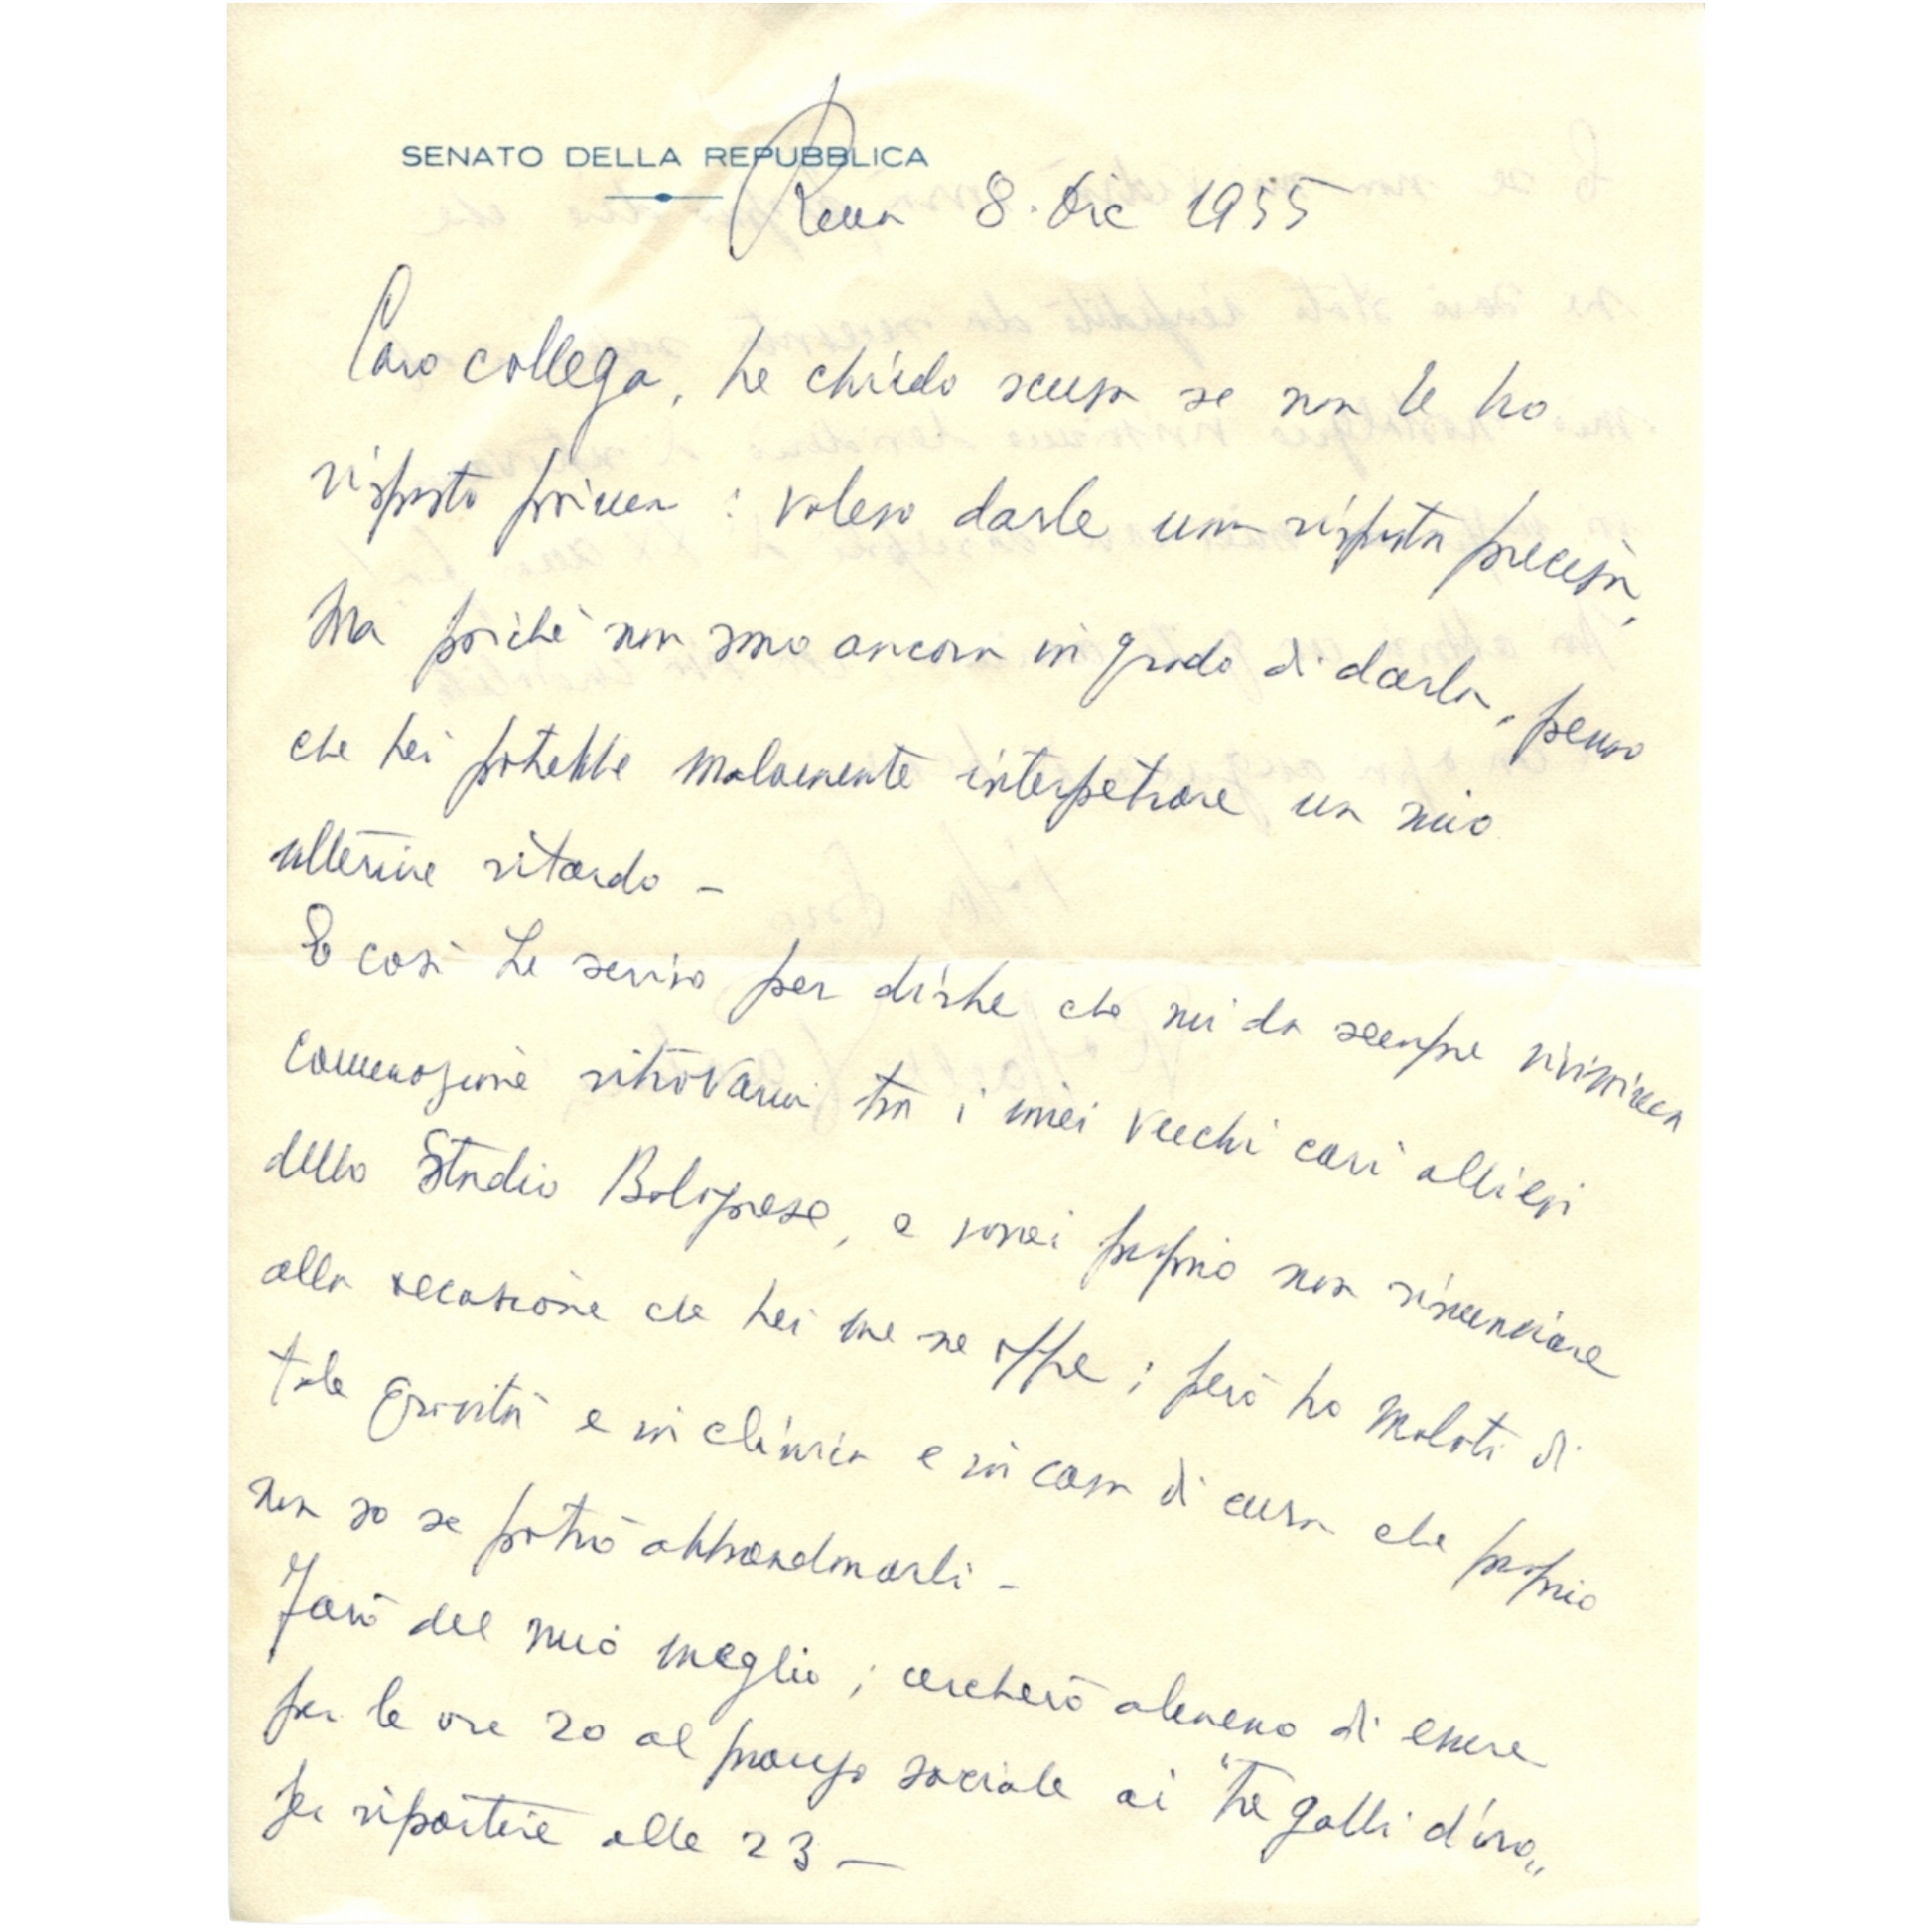 SENATO DELLA REPUBBLICA
Roma 8. Dic 1955
Caro collega, Le chiedo scusa se non Le ho
risposto prima: volevo darle una risposta precisa,
Ma poichè non sono ancora in grado di darla, penso
che Lei potrebbe malamente interpetrare un mio
ulteriore ritardo –
E così Le scrivo per dirLe che mi da sempre vivissima
commozione ritrovarmi tra i miei vecchi cari allievi
dello Studio Bolognese, e vorrei proprio non rinunciare
alla occasione che Lei me ne offre; però ho malati di
tale gravità e in clinica e in casa di cura che proprio
non so se potrò abbandonarli –
Farò del mio meglio; cercherò almeno di essere
per le ore 20 al pranzo sociale ai "Tre galli d'oro„
per ripartire alle 23 –